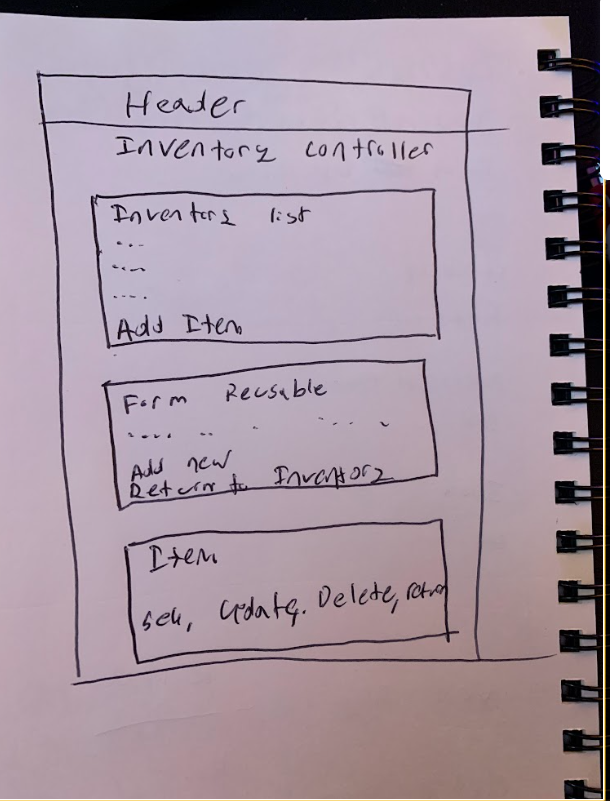 Header
Inventory controller
Inventory list
...
...
....
Add Item
Form Reusable
Add new
Return to Inventory
Item
Sell, Update. Delete, return